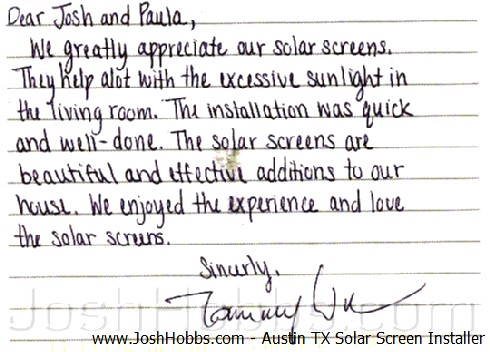 Dear Josh and Paula,
We greatly appreciate our solar screens.
They help alot with the excessive sunlight in
the living room. The installation was quick
and well-done. The solar screens are
beautiful and effective additions to our
house. We enjoyed the experience and love
the solar screens.
Sincerly,
Tammy
JoshHobbs.com
www.JoshHobbs.com - Austin TX Solar Screen Installer